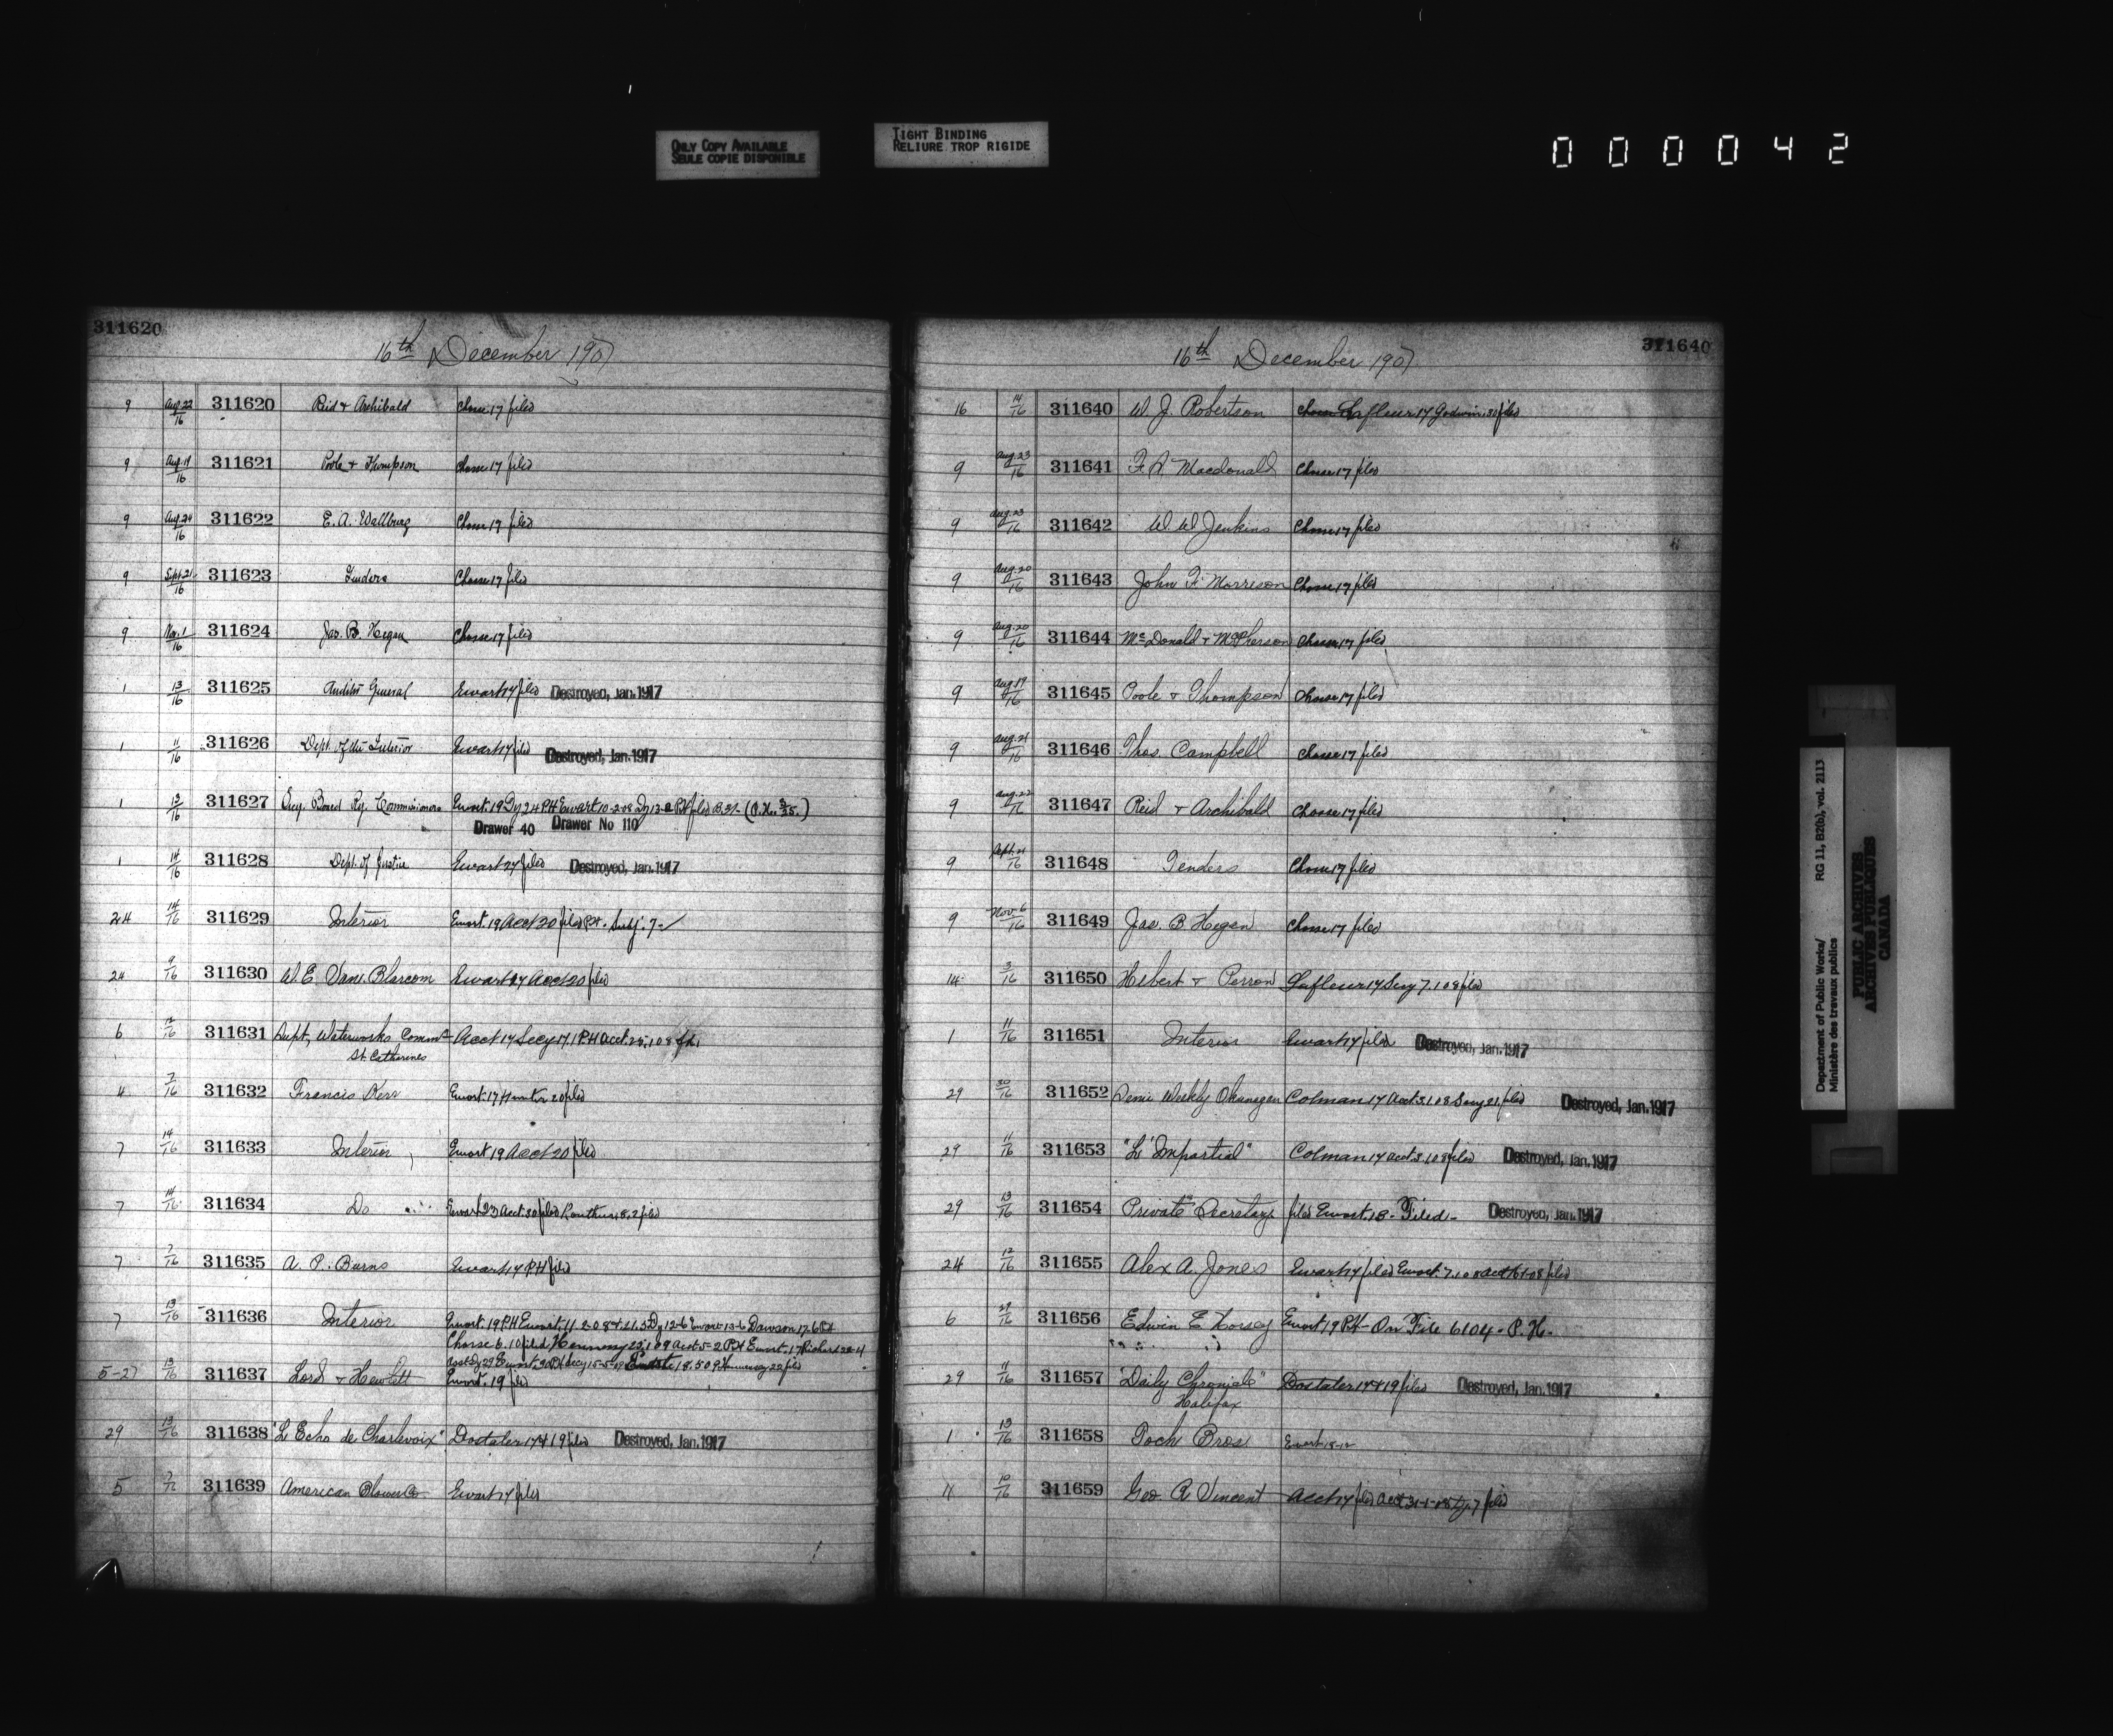 ONLY COPY AVAILABLE
SEULE COPIE DISPONIBLE
TIGHT BINDING
RELIURE TROP RIGIDE
000042
311620
16th December 1907
9 Aug.22/16 311620 Reid & Archibald Chasse 17 filed
9 Aug.19/16 311621 Poole & Thompson Chasse 17 filed
9 Aug.24/16 311622 E. A. Wallburg Chasse 17 filed
9 Sept.21/16 311623 Tenders Chasse 17 filed
9 Nov.1/16 311624 Jas. B. Hegan Chasse 17 filed
1 13/16 311625 Auditor General Ewart 17 filed Destroyed, Jan. 1917
1 11/16 311626 Dept. of the Interior Ewart 17 filed Destroyed, Jan. 1917
1 13/16 311627 Board Ry. Commissioners Ewart. 19 Dy 24 PH Ewart 10-2-08 Dy 13-2 PH filed
Drawer 40 Drawer No 110
1 14/16 311628 Dept. of Justice Ewart 27 filed Destroyed, Jan. 1917
24 14/16 311629 Interior Ewart. 19 Acct 20 filed
24 9/16 311630 W. E. Van Blarcom Ewart 17 Acct 20 filed
6 12/16 311631 Supt. Waterworks Commn Acct 17 Secy 17.1 PH Acct. 25.1.08
St. Catherines
4 7/16 311632 Francis Kerr Ewart. 17 Hunter 20 filed
7 14/16 311633 Interior Ewart 19 Acct 20 filed
7 14/16 311634 Do Ewart 23 Acct. 30 filed Routhier 18.2 filed
7 7/16 311635 A. P. Burns Ewart 17 PH filed
7 13/16 311636 Interior Ewart. 19 PH Ewart. 11-2-08 Dy 12-6 Ewart 13-6 Dawson 17-6 PH
Chasse 6.10 filed Hennessy 23.1.09 Acct 5-2 PH Ewart. 17 Richard 22-4
5-27 13/16 311637 Lord & Hewlett Ewart. 19 filed
29 13/16 311638 "L'Echo de Charlevoix" Dostaler 17 & 19 filed Destroyed, Jan. 1917
5 311639 American Blower Co Ewart 17 filed
311640
16th December 1907
16 14/16 311640 W. J. Robertson Lafleur 17 Godwin. 30 filed
9 Aug.23/16 311641 F. A. Macdonald Chasse 17 filed
9 Aug.23/16 311642 W. W. Jenkins Chasse 17 filed
9 Aug.20/16 311643 John F. Morrison Chasse 17 filed
9 Aug.20/16 311644 McDonald & McPherson Chasse 17 filed
9 Aug.19/16 311645 Poole & Thompson Chasse 17 filed
9 Aug.21/16 311646 Thos. Campbell Chasse 17 filed
9 Aug.22/16 311647 Reid & Archibald Chasse 17 filed
9 Sept.21/16 311648 Tenders Chasse 17 filed
9 Nov.6/16 311649 Jas. B. Hegan Chasse 17 filed
14 3/16 311650 Hebert & Perron Lafleur 17 Secy 7.1.08 filed
1 11/16 311651 Interior Ewart 17 filed Destroyed, Jan. 1917
29 30/16 311652 Weekly Okanagan Colman 17 Acct. 3.1.08 Secy 21 filed Destroyed, Jan. 1917
29 11/16 311653 "L'Impartial" Colman 17 acct. 3.1.08 filed Destroyed, Jan. 1917
29 13/16 311654 Private Secretary filed Ewart. 18 - Filed - Destroyed, Jan. 1917
24 12/16 311655 Alex A. Jones Ewart 17 filed Ewart. 7.1.08 acct 16-1-08 filed
6 29/16 311656 Edwin E Horsey Ewart 19 PH - On File 6104 - P. H.
29 11/16 311657 "Daily Chronicle" Dostaler 17 & 19 filed Destroyed, Jan. 1917
Halifax
1 13/16 311658 Poch Bros. Ewart 18-12
11 10/16 311659 Geo. R. Vincent Acct 17 filed Acct 31-1-08 Dy. 7 filed
Department of Public Works/ RG 11, B2(b), vol. 2113
Ministère des travaux publics
PUBLIC ARCHIVES
ARCHIVES PUBLIQUES
CANADA